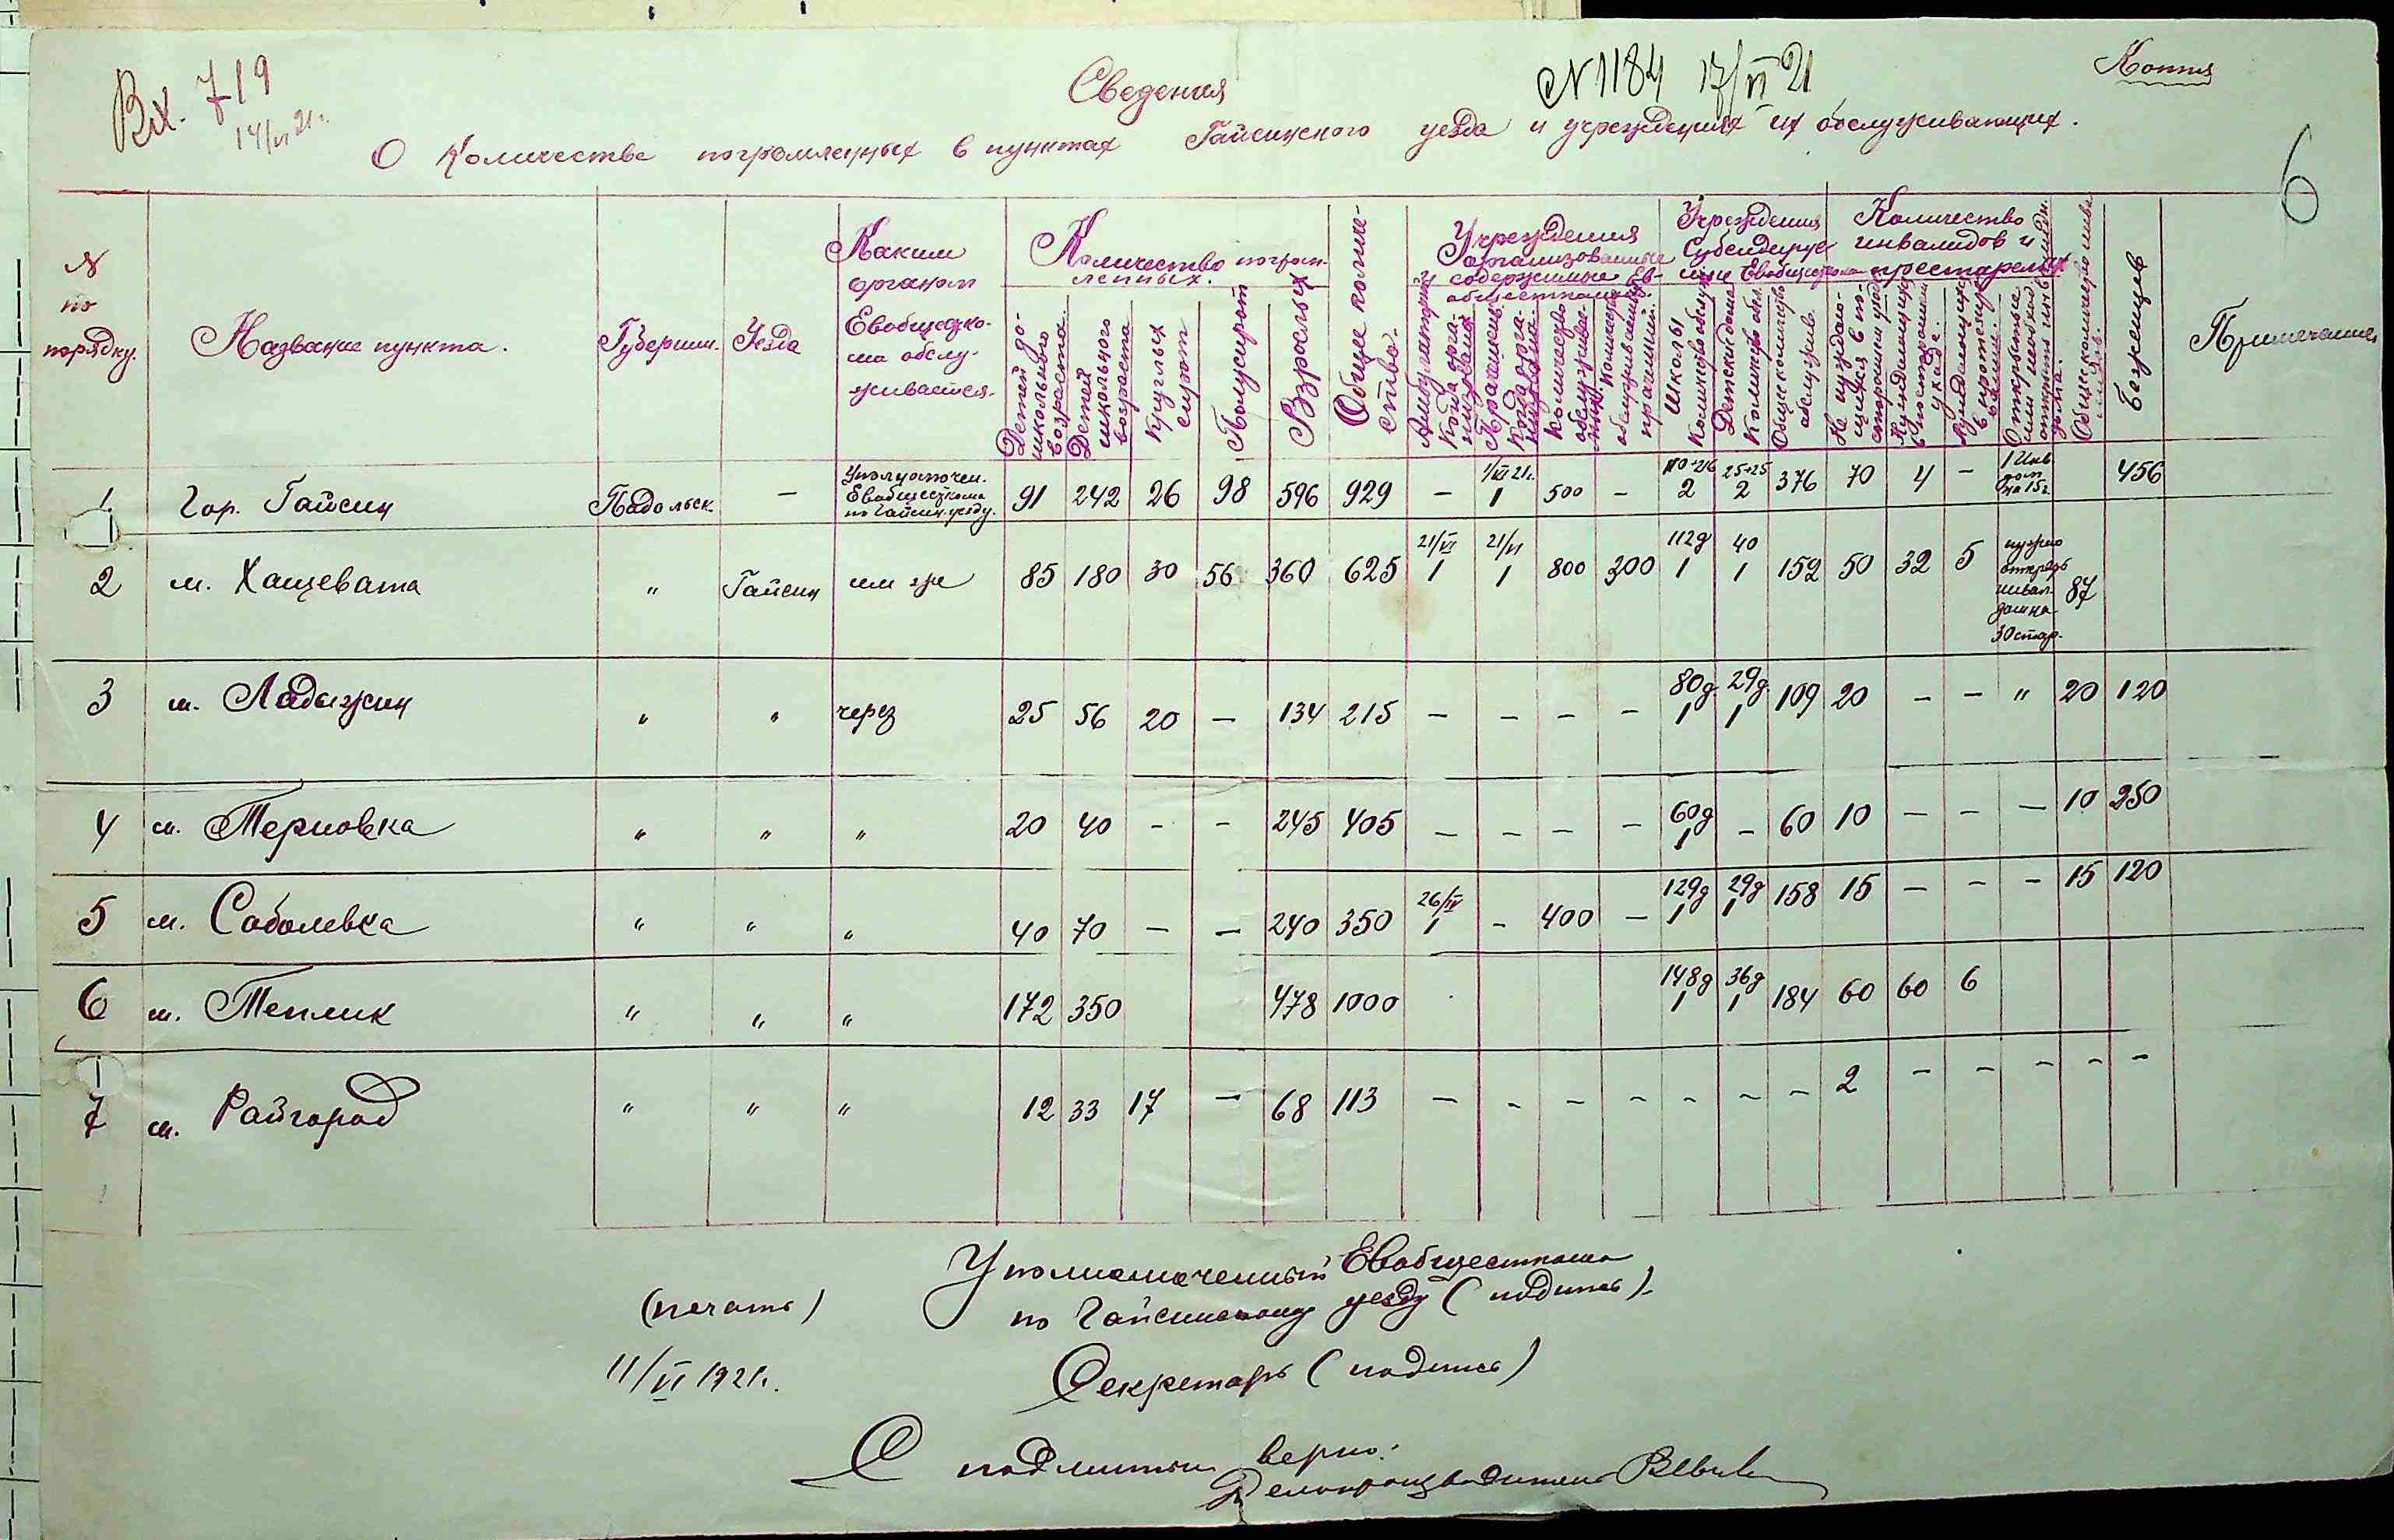 Вх. 719
14/VI 21г.
N 1184 17/VI 21
Копия
6
Сведения
О Количестве погромленных в пунктах Гайсинского уезда и учреждениях их обслуживающих.
N по порядку.
Название пункта.
Губернии.
Уезда
Каким органом Евобщеско-ма обслу-живается.
Количество погром-ленных.
Детей до-школьного возраста.
Детей школьного возраста
Круглых сирот
Полусирот
Взрослых
Общее количе-ство.
Учреждения организованные и содержимые Ев-обществом.
Амбулатории Когда орга-низована
Прачешен. Когда орга-низована.
Количество обслужива-
Количество обслуживаемых прачешной.
Учреждения Субсидируе-
Школы Количество обслуж
Детские дома Количество обсл.
Общее количество обслужив.
Количество инвалидов и престарелых
Не нуждаю-щихся в по-
Нуждающихся
Нуждающихся в протезиро-вании.
Открытые или необход. открыть инв. дома.
Общее количество инва-лидов.
Беженцев
Примечание
1 Гор. Гайсин Подольск. — Уполномочен. Евобщесткома по Гайсин. уезду. 91 242 26 98 596 929 — 1/VI 21г. 1 500 — 110+216 2 25+25 2 376 70 4 — 1 Инв дом на 15 г. 456
2 м. Хащевата " Гайсин им же 85 180 30 56 360 625 21/VI 1 21/VI 1 800 300 112д 1 40 1 152 50 32 5 нужно открыть инвал. дом на 30 стар. 87
3 м. Ладыжин " " через 25 56 20 — 134 215 — — — — 80д 1 29д. 1 109 20 — — " 20 120
4 м. Терновка " " " 20 40 - - 245 405 — — — — 60д 1 — 60 10 — — — 10 250
5 м. Соболевка " " " 40 70 — — 240 350 26/IV 1 - 400 — 129д 1 29д 1 158 15 — — — 15 120
6 м. Теплик " " " 172 350 478 1000 148д 1 36д 1 184 60 60 6
7 м. Райгород " " " 12 33 17 — 68 113 — - — — - — — 2 — — — — —
Уполномоченный Евобщесткома
(печать) по Гайсинскому уезду (подпись).
11/VI 1921г. Секретарь (подпись)
С подлинным верно:
Делопроизводитель